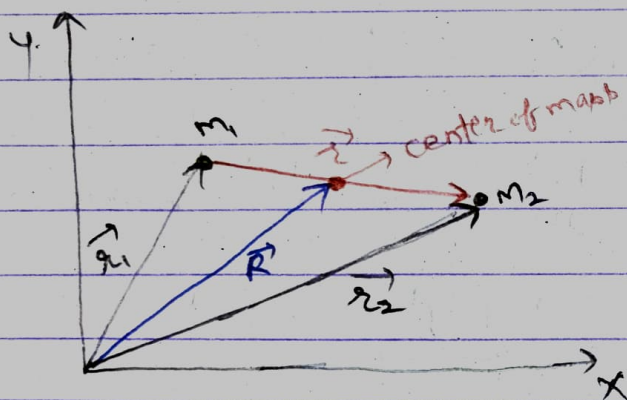 Y
m₁
r⃗
center of mass
m₂
r⃗₁
R⃗
r⃗₂
X